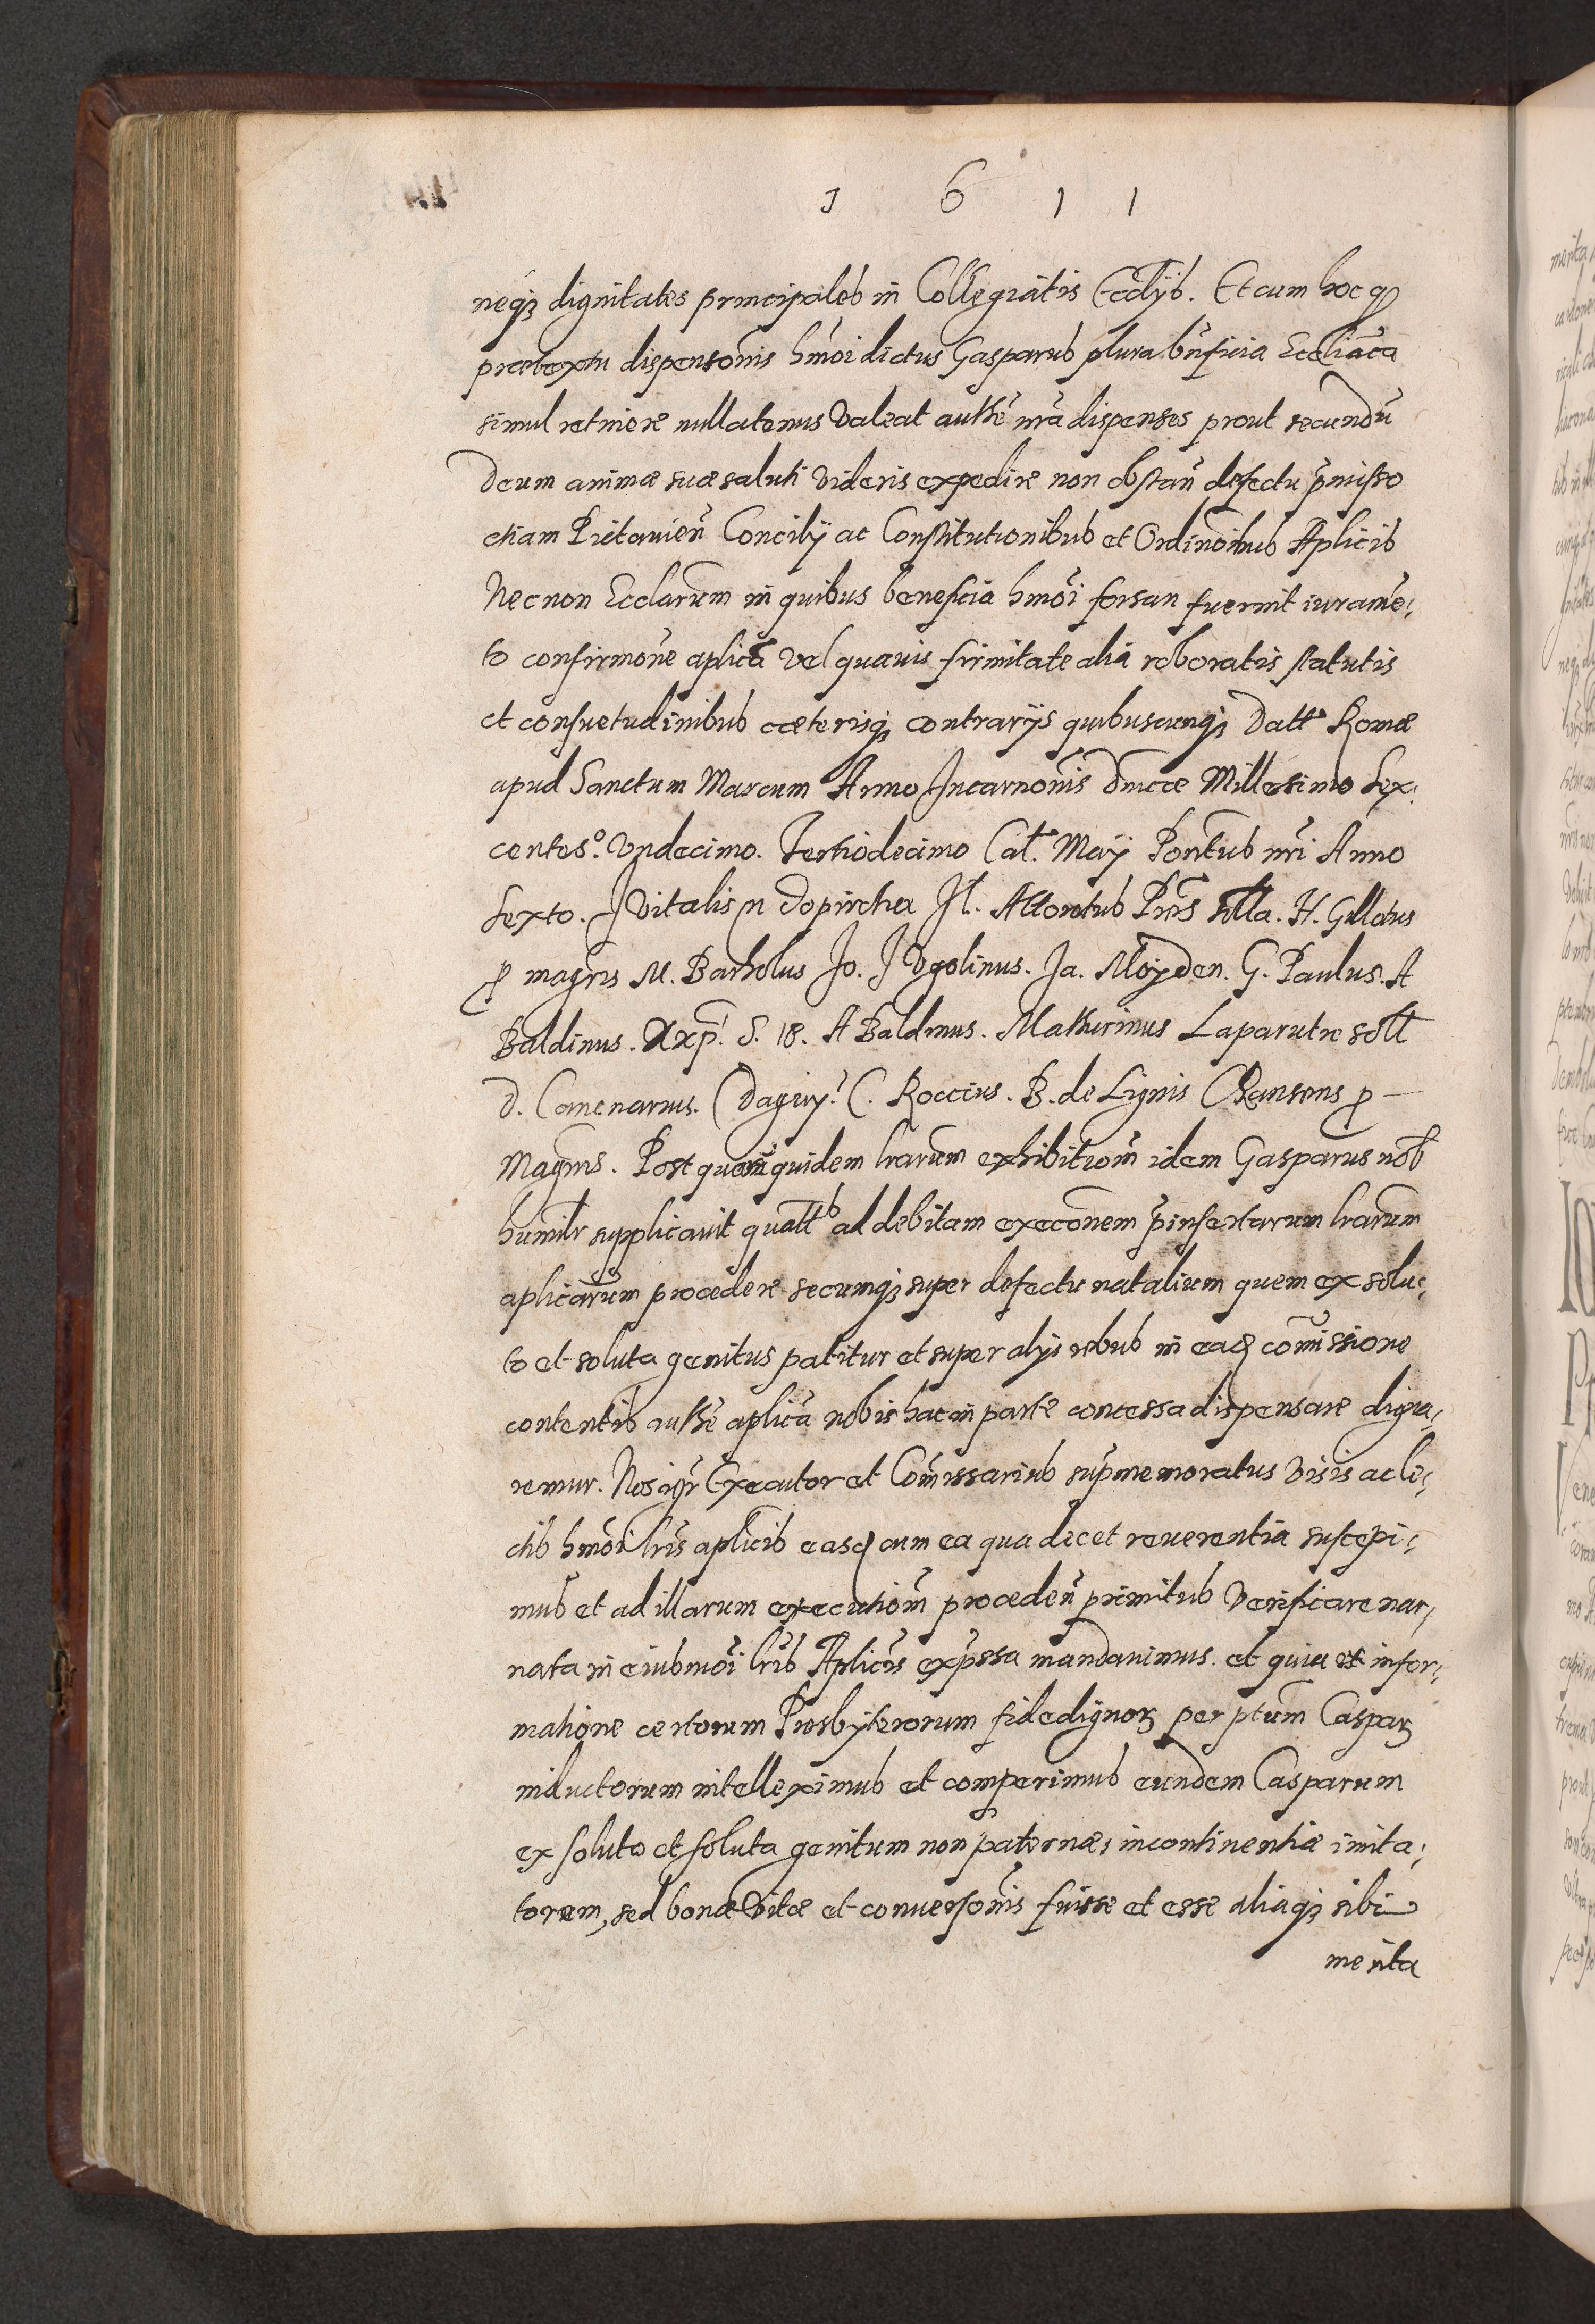 1 6 1 1
neqȝ dignitates principales in Collegiatis Ecclijs. Et cum hoc qꝫ
prætextu dispensonis hmoi dictus Gasparus plura bnficia Eccliaca
simul retinere nullatenus valeat authẽ nra dispenses prout secundũ
deum animæ suæ saluti videris expedire non obstañ defectu p̃misso
etiam Pictavieñ Concilij ac Constitutionibus et Ordinonibus Aplicis
Necnon Ecclarum in quibus beneficia hmõi forsan fuerint iuramẽ:
to confirmone aplica vel quavis firmitate alia roboratis statutis
et consuetudinibus cæterisqȝ contrarijs quibuscunqȝ Datt Romæ
apud Sanctum Marcum Anno Incarnonis dnicæ Millesimo Sex:
centes.º Undecimo. Tertiodecimo Cal. Maij Pontus nri Anno
Sexto. J Vitalis H. Gillotus
ꝓ magris M. Bartholus Jo. J Ugolinus. Ja. Moyden. G. Paulus. A
Baldinus. Xp̃. S. 18. A Baldinus. Mathurinus Laparutre soll
D. Canenarius. C. Roccius. B. de Lignis ꝓ
Magris. Post quarũ quidem lrarum exhibitiom̃ idem Gasparus nob
humilr supplicavit quatts ad debitam execonem p̃insertarum lrarum
aplicarum procedere secumqȝ super defectu natalium quem ex solu:
to et soluta genitus patitur et super alijs rebus in eadꝫ com̃issione
contentis authẽ aplica nobis hac in parte concessa dispensare digna:
remur. Nos igr Executor et Com̃issarius sup̃memoratus visis ac le:
ctis hmõi lris aplicis easqꝫ cum ea qua decet reverentia suscepi:
mus et ad illarum executiom̃ procedeñ primitus verificare nar:
nata in eiusmõi lris Aplicis exp̃ssa mandavimus. et quia ex infor:
matione certorum Presbyterorum fidedignoꝝ per ptum Caspaꝝ
inductorum intelleximus et comperimus eundem Casparum
ex soluto et soluta genitum non paternæ, incontinentiæ imita:
torem, sed bonæ vitæ et conversonis fuisse et esse aliaqȝ sibi
merita